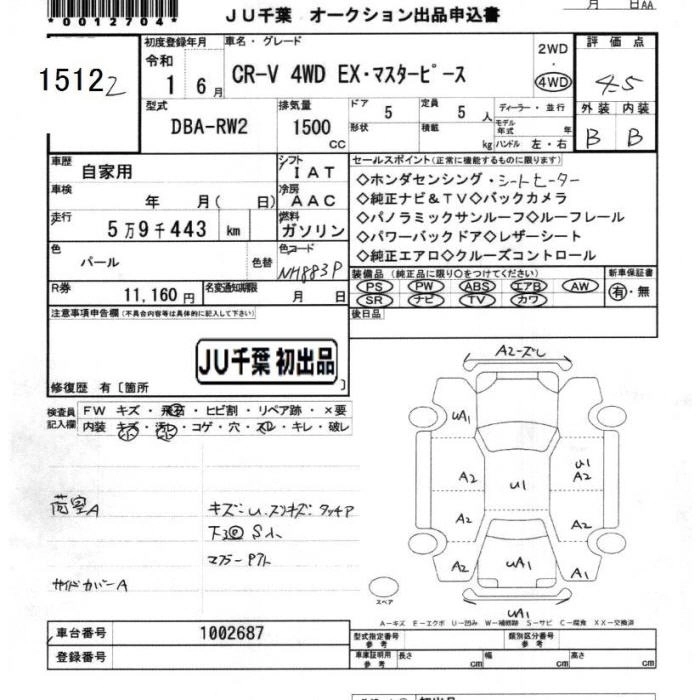 月 日 AA
*0012704*
JU千葉 オークション出品申込書
15122
初度登録年月
令和
1 6月
車名・グレード
CR-V 4WD EX・マスターピース
2WD
・
4WD
評価点
4.5
外装 内装
B B
型式
DBA-RW2
排気量
1500
cc
ドア 5
形状
定員 5 人
積載 kg
ディーラー・並行
モデル年式 年
ハンドル 左・右
車歴
自家用
シフト
IAT
車検
年 月( 日)
冷房
AAC
走行
5万9千443 km
燃料
ガソリン
色
パール
色替
色コード
NH883P
R券
11,160円
名変通知期限
月 日
セールスポイント(正常に機能するものに限ります)
◇ホンダセンシング・シートヒーター
◇純正ナビ&TV◇バックカメラ
◇パノラミックサンルーフ◇ルーフレール
◇パワーバックドア◇レザーシート
◇純正エアロ◇クルーズコントロール
装備品(純正品に限り○をつけてください)
PS PW ABS エアB AW
SR ナビ TV カワ
新車保証書
有・無
後日品
注意事項申告欄(不具合内容等は具体的に記入して下さい)
JU千葉 初出品
修復歴 有〔箇所 〕
検査員
記入欄
FW キズ・飛石・ヒビ割・リペア跡・×要
内装 キズ・汚レ・コゲ・穴・スレ・キレ・破レ
荷室A
キズ:U.スリキズ タッチア
マフラー
サイドカバーA
A2-ズレ
UA1
A2
U1
U1
A2
A2
A2
A2
UA1
A2
A1
UA1
スペア
A-キズ E-エクボ U-凹み W-補修跡 S-サビ C-腐食 XX-交換済
車台番号
1002687
型式指定番号
参考
類別区分番号
参考
登録番号
車庫証明用
参考
長さ cm
幅 cm
高さ cm
初出品